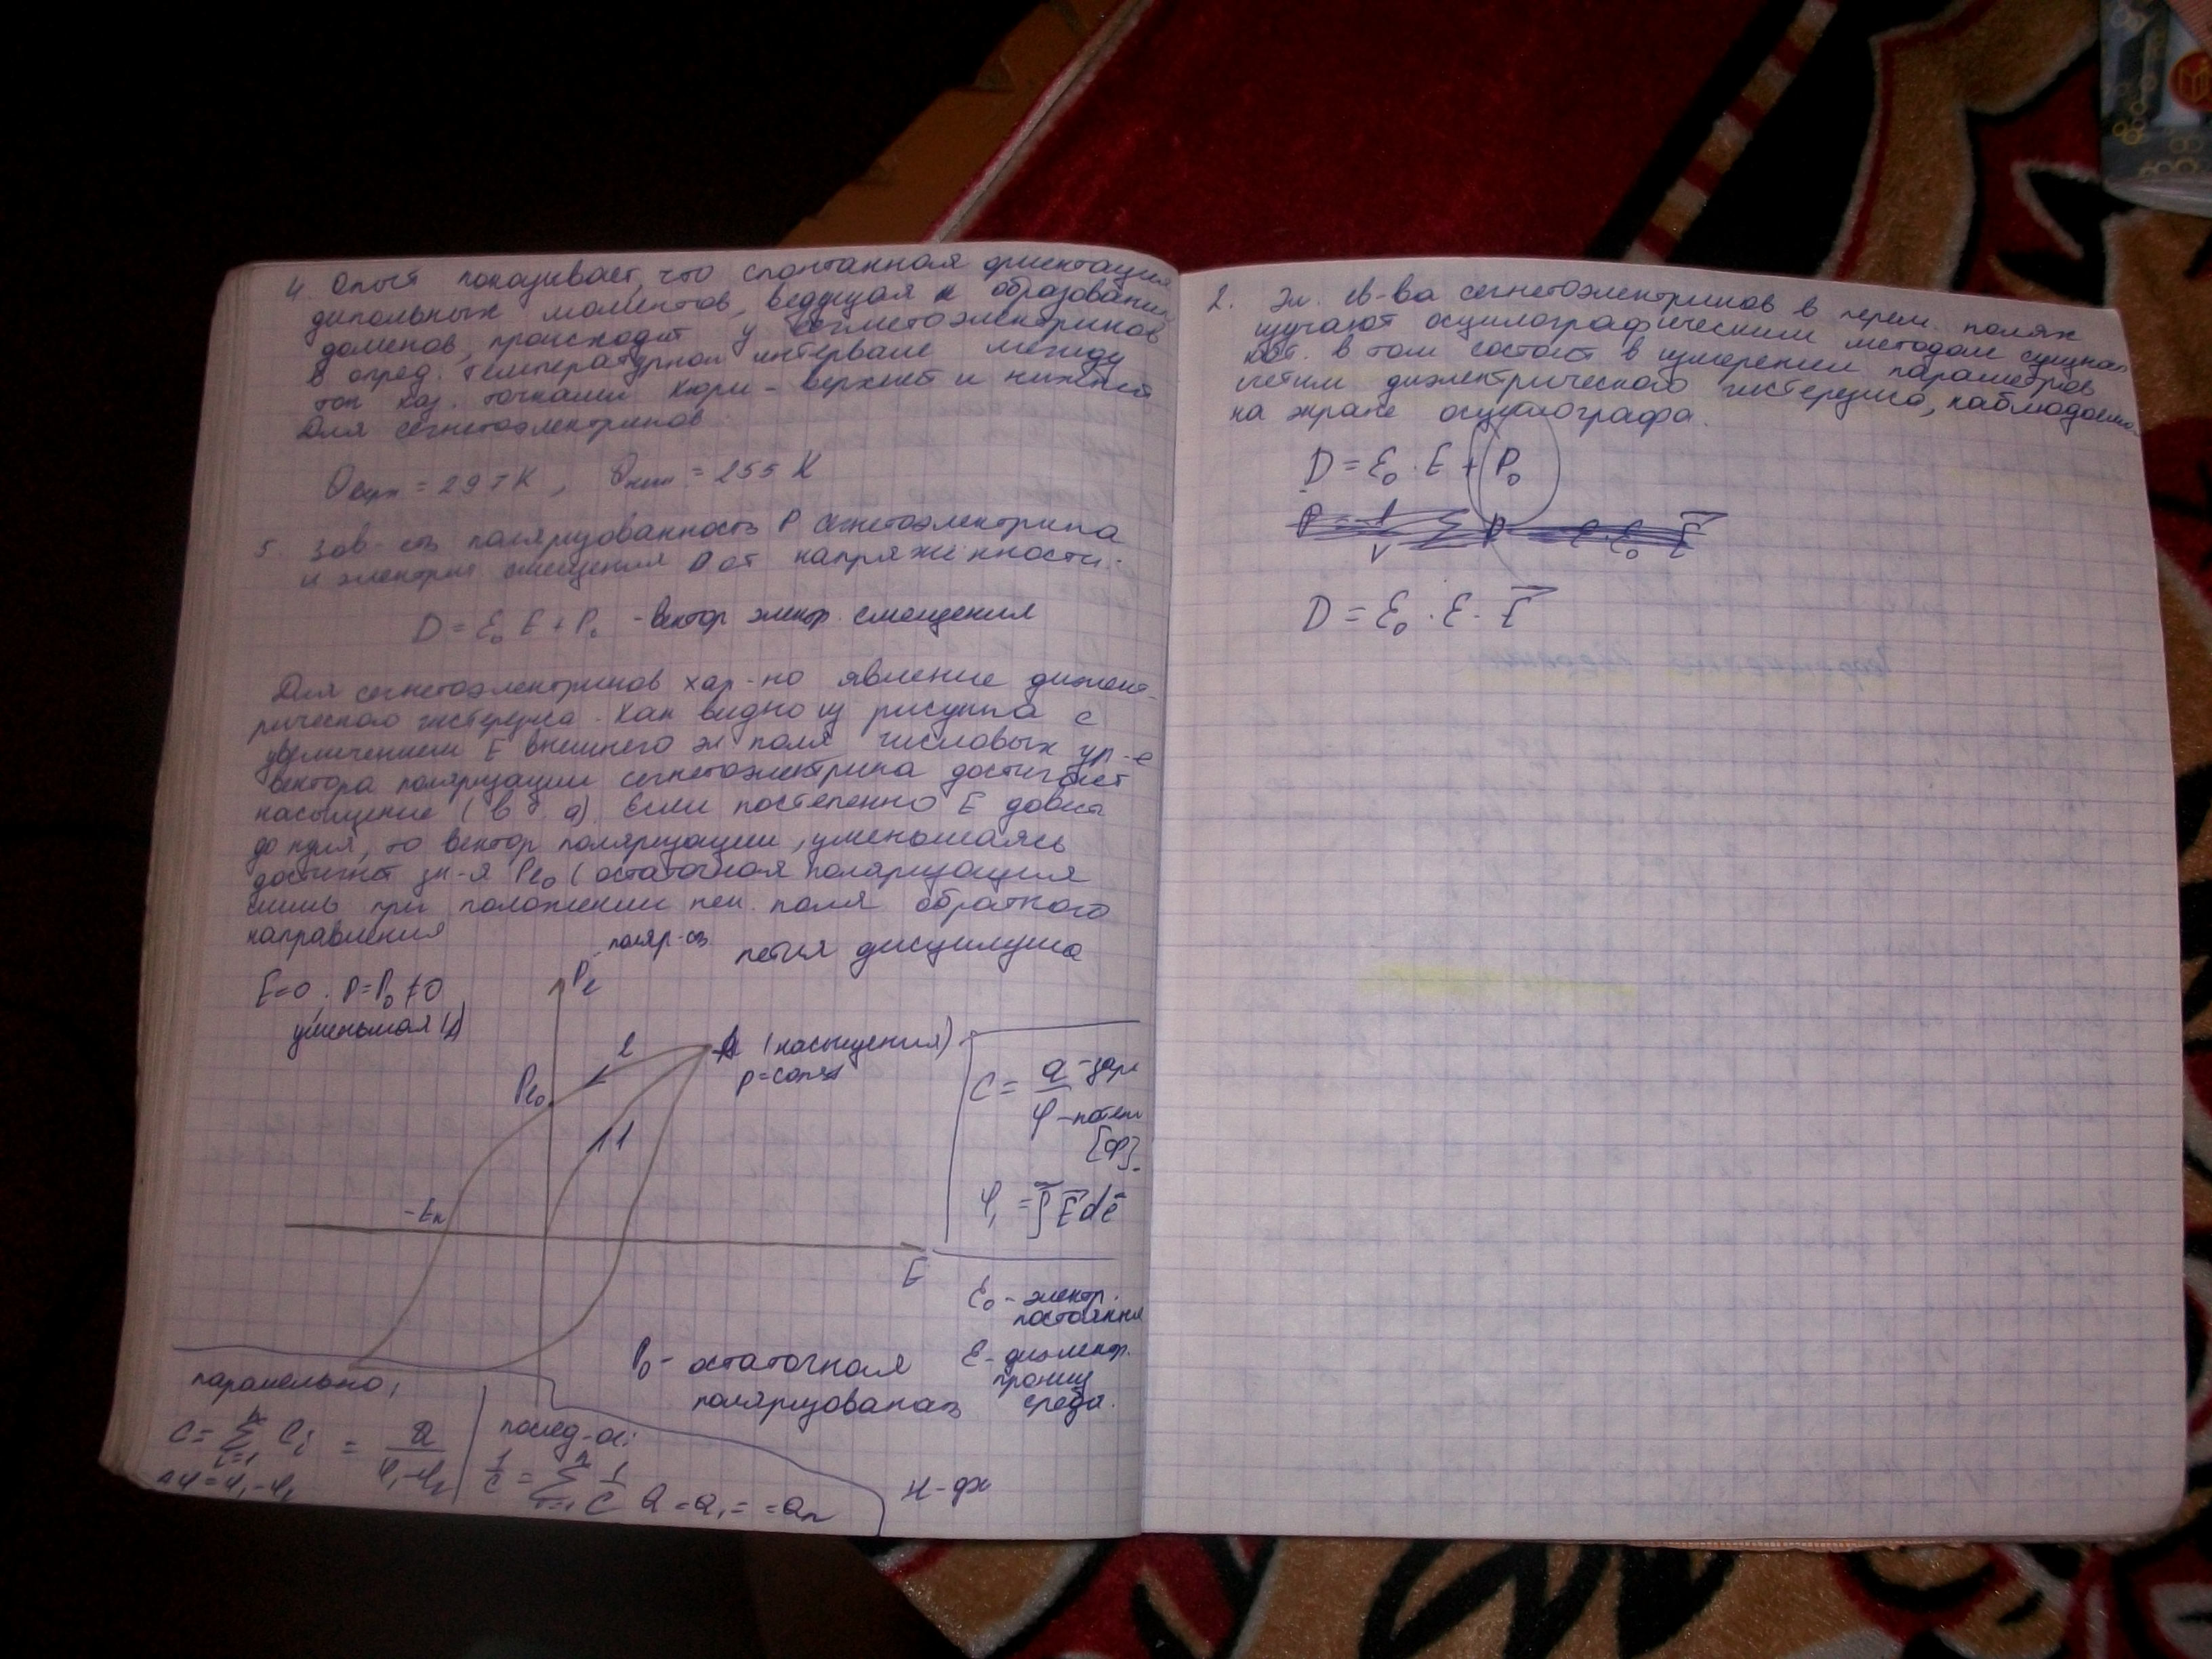 4. Опыт показывает, что спонтанная ориентация
дипольных моментов, ведущая к образованию
доменов, происходит у сегнетоэлектриков
в опред. температурном интервале между
так наз. точками Кюри - верхней и нижней
Для сегнетоэлектриков
θверх = 297К, θниж = 255 К
5. Зав-сть поляризованность P сегнетоэлектрика
и электрич смещения D от напряжённости.
D = ε₀ E + P₀ - вектор электр. смещения
Для сегнетоэлектриков хар-но явление диэлект-
рического гистерезиса. Как видно из рисунка с
увеличением E внешнего эл поля числовых
вектора поляризации сегнетоэлектрика достигает
насыщение (в т. а). Если постепенно E
до нуля, то вектор поляризации, уменьшаясь
достигнет зн-я Pe₀ (остаточная поляризация
лишь при положении поля обратного
направления
поляр-сть
петля
E=0; P=P₀ ≠ 0
Pe
2
(насыщения)
P=const
Pe₀
1
-Eк
E
C = Q - зар
φ - потен
[Ф].
φ₁ = ∫ E dℓ
ε₀ - электр.
постоянная
ε - диэлектр.
прониц
среда.
P₀ - остаточная
поляризована
паралельно,
C = Σ Cᵢ = Q / φ₁-φ₂
i=1
Δφ = φ₁-φ₂
послед-о:
1/C = Σ 1/C Q = Q₁ = = Qn
2. Эл. св-ва сегнетоэлектриков в перем. полях
изучают осцилографическим методом сущнос
кот. в том состоит в измерении параметров
петли диэлектрического гистерезиса, наблюдаемо
на экране осцилографа.
D = ε₀ · E + P₀
D = ε₀ · ε · E